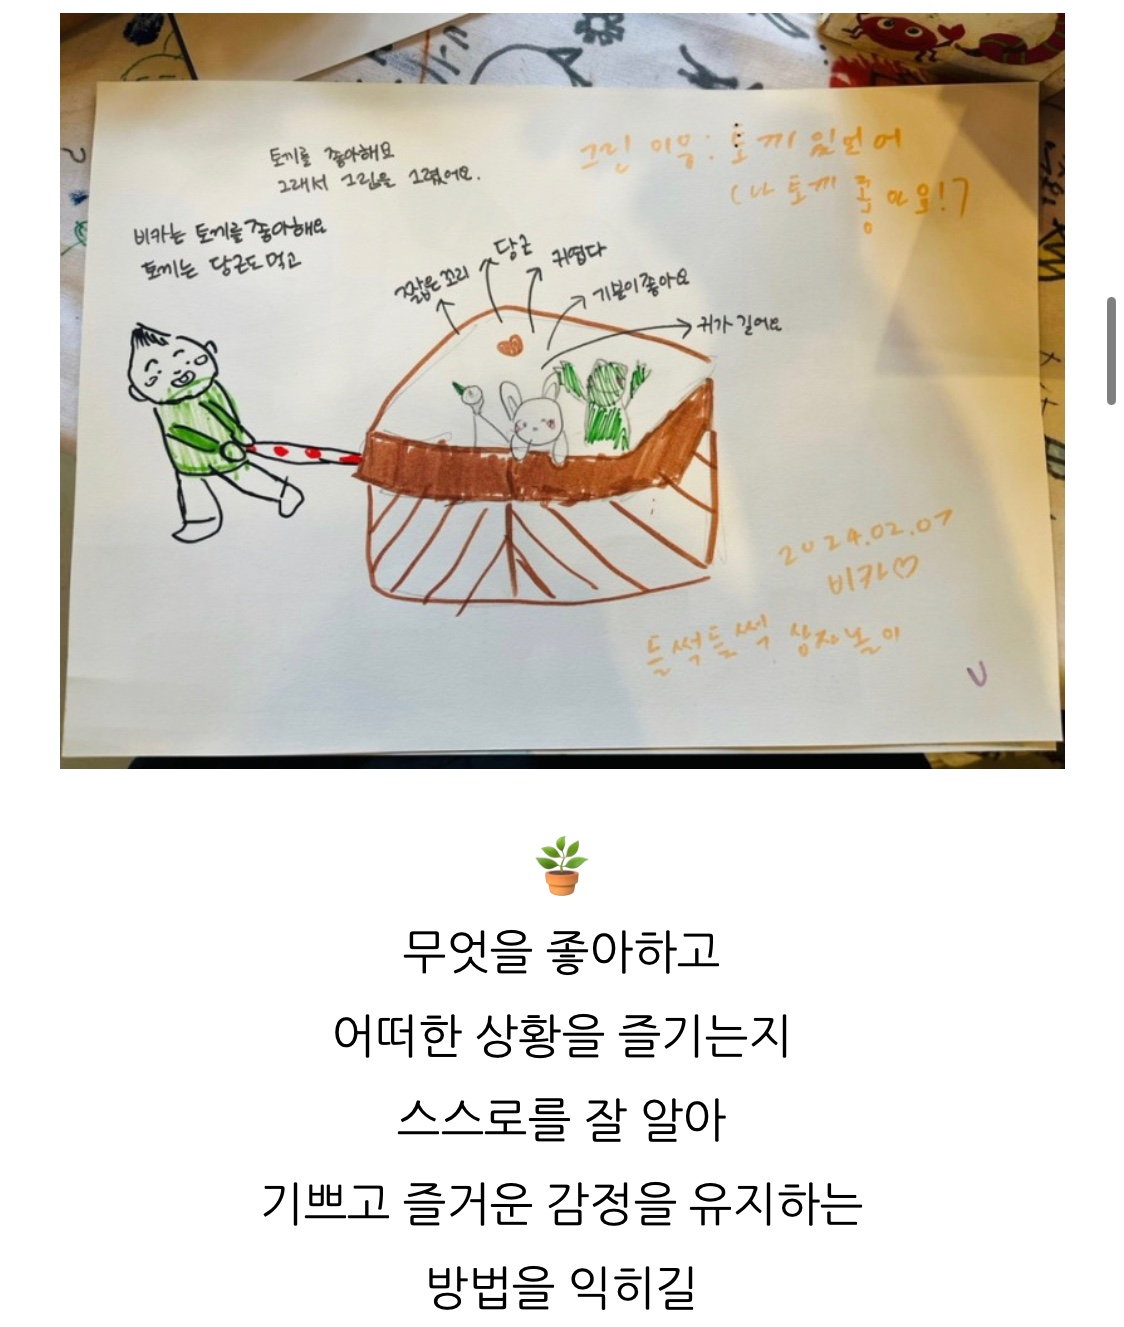 토끼를 좋아해요
그래서 그림을 그렸어요.
그린 이유: 토끼
(나 토끼 좋아요!)
비카는 토끼를 좋아해요
토끼는 당근도 먹고
짧은 꼬리
당근
귀엽다
기분이 좋아요
귀가 길어요
2024.02.07
비카♡
들썩들썩 상자놀이
무엇을 좋아하고
어떠한 상황을 즐기는지
스스로를 잘 알아
기쁘고 즐거운 감정을 유지하는
방법을 익히길